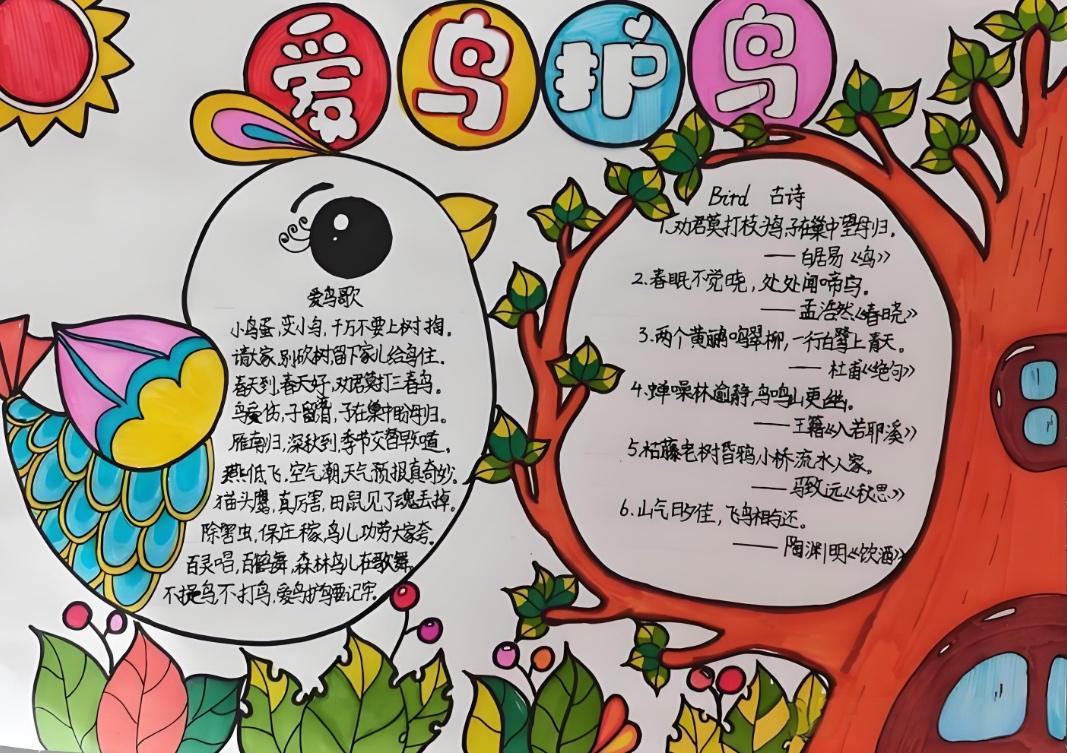 爱鸟护鸟
爱鸟歌
小鸟蛋,变小鸟,千万不要上树掏。
请大家,别砍树,留下家儿给鸟住。
春天到,春天好,劝君莫打三春鸟。
鸟受伤,子留清,子在巢中盼母归。
雁南归,深秋到,季节交替早知道。
燕低飞,空气潮,天气预报真奇妙。
猫头鹰,真厉害,田鼠见了魂丢掉。
除害虫,保庄稼,鸟儿功劳大家夸。
百灵唱,百鹤舞,森林鸟儿在歌舞。
不捉鸟,不打鸟,爱鸟护鸟要记牢。
Bird 古诗
1.劝君莫打枝头鸟,子在巢中望母归。
——白居易《鸟》
2.春眠不觉晓,处处闻啼鸟。
——孟浩然《春晓》
3.两个黄鹂鸣翠柳,一行白鹭上青天。
——杜甫《绝句》
4.蝉噪林逾静,鸟鸣山更幽。
——王籍《入若耶溪》
5.枯藤老树昏鸦,小桥流水人家。
——马致远《秋思》
6.山气日夕佳,飞鸟相与还。
——陶渊明《饮酒》